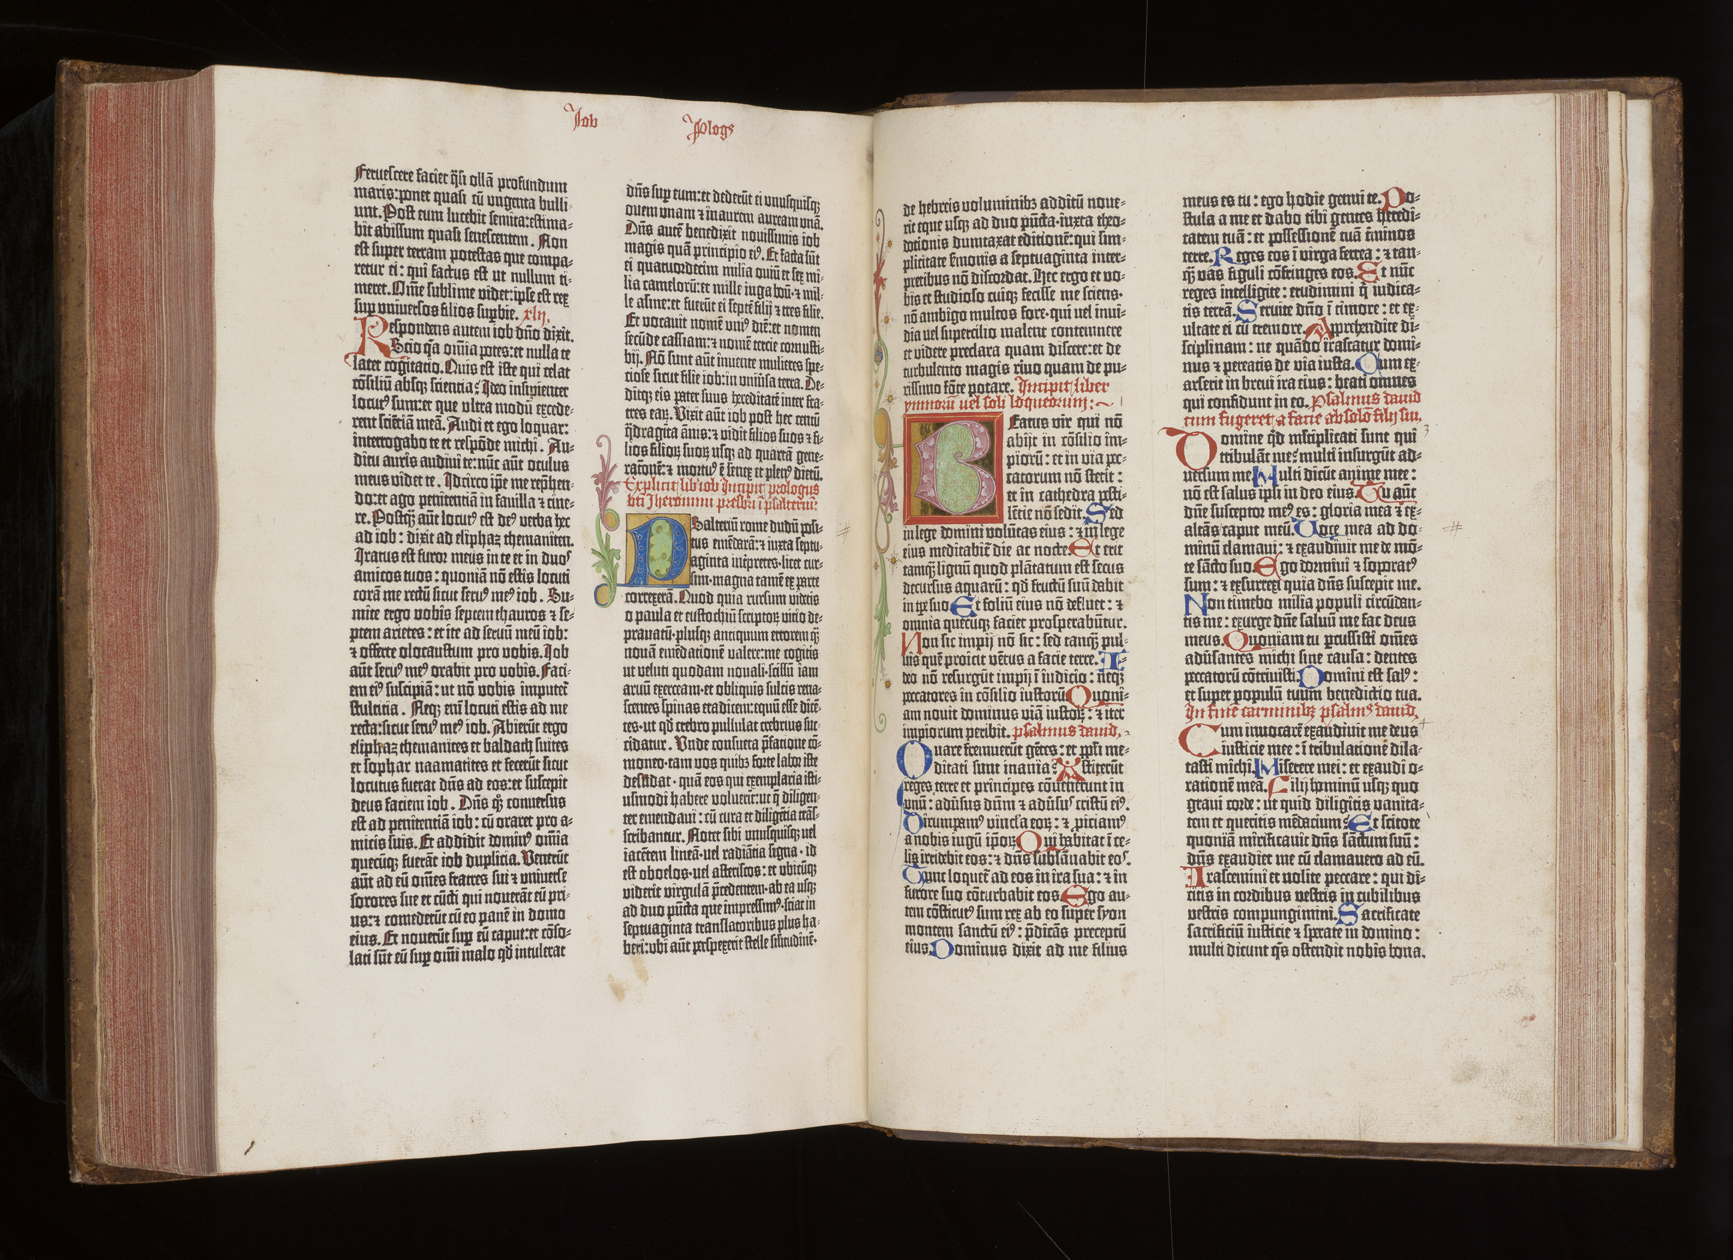 Job
Plogꝰ
feruescere faciet q̃si ollā profundum
maris: ponet quasi cū vngenta bulli-
unt. Post eum lucebit semita: estima-
bit abissum quasi senescentem. Non
est super terram potestas que compa-
retur ei: qui factus est ut nullum ti-
meret. Om̄e sublime videt: ipse est rex
sup̱ universos filios sup̱bie. xlij.
Respondens autem iob dn̄o dixit.
Scio q̃a om̄ia potes: et nulla te
latet cogitatio. Quis est iste qui celat
cōsiliū absq; scientia? Ideo insipienter
locutꝰ sum: et que ultra modū excede-
rent sciētiā meā. Audi et ego loquar:
interrogabo te et respōde michi. Au-
ditu auris audivi te: nūc aūt oculus
meus videt te. Idcirco ip̄e me rep̄hen-
do: et ago penitentiā in favilla et cine-
re. Postq̃ aūt locutꝰ est deꝰ verba hec
ad iob: dixit ad eliphaz themaniten.
Iratus est furor meus in te et in duoˢ
amicos tuos: quoniā nō estis locuti
corā me rectū sicut servꝰ meꝰ iob. Su-
mite ergo vobis septem thauros et se-
ptem arietes: et ite ad servū meū iob:
et offerte olocaustum pro vobis. Iob
aūt servꝰ meꝰ orabit pro vobis. Faci-
em eiꝰ suscipiā: ut nō vobis imputet̄
stulticia. Neq; em̄ locuti estis ad me
recta: sicut servꝰ meꝰ iob. Abierūt ergo
eliphaz themanites et baldach suites
et sophar naamatites et fecerūt sicut
locutus fuerat dn̄s ad eos: et suscepit
deus faciem iob. Dn̄s q̊ conversus
est ad penitentiā iob: cū oraret pro a-
micis suis. Et addidit dominꝰ om̄ia
quecūq; fuerāt iob duplicia. Venerūt
aūt ad eū om̄es fratres sui et universe
sorores sue et cūcti qui noverāt eū pri-
us: et comederūt cū eo panē in domo
eius. Et moverūt sup̱ eū caput: et cōso-
lati sūt eū sup̱ om̄i malo qd̄ intulerat
dn̄s sup̱ eum: et dederūt ei unusquisq;
ovem vnam et inaurem auream vnā.
Dn̄s autē benedixit novissimis iob
magis quā principio eiꝰ. Et facta sūt
ei quatuordecim milia oviū et sex mi-
lia camelorū: et mille iuga boū: et mil-
le asine: et fuerūt ei septē filij et tres filie.
Et vocavit nomē vniꝰ diē: et nomen
secūde cassiam: et nomē tercie cornusti-
bij. Nō sunt aūt invente mulieres spe-
ciose sicut filie iob: in univ̄sa terra. De-
ditq; eis pater suus hereditatē inter fra-
tres eaꝝ. Vixit aūt iob post hec centū
q̃dragita ānis: et vidit filios suos et fi-
lios filioꝝ suoꝝ usq; ad quartā gene-
rationē: et mortuꝰ ē senex et plenꝰ dierū.
Explicit lib̾ iob Incipit prologus
bt̄i Iheronimi presbri ī psalteriū:
Psalteriū rome dudū posi-
tus emēdarā: et iuxta septu-
aginta interpretes. licet cur-
sim. magna tamē ex parte
correxerā. Quod quia rursum videtis
o paula et eustochiū scriptoꝝ vitio de-
pravatū. plusq; antiquum errorem q̃
novā emēdationē valere: me cogitis
ut veluti quodam novali. scissū iam
arvū exerceam. et obliquis sulcis rena-
scentes spinas eradicem: equū esse dicē-
tes. ut qd̄ crebro pullulat crebrius suc-
cidatur. Vnde consueta p̄fatione cō-
moneo. tam vos quibs forte labor iste
desudat. quā eos qui exemplaria isti-
usmodi habere voluerīt: ut q̄ diligen-
ter emendavi: cū cura et diligētia trās-
scribantur. Notet sibi unusquisq; vel
iacētem lineā. vel radiātia signa. id
est obelos. vel asteriscos: et ubicūq;
viderit virgulā p̄cedentem. ab ea usq;
ad duo pūcta que impressimꝰ. sciat in
septuaginta translatoribus plus ha-
beri: ubi aūt p̱spexerit stelle similitudinē.
de hebreis voluminibꝫ additū nove-
rit eque usq; ad duo pūcta. iuxta theo-
dotionis dumtaxat editionē: qui sim-
plicitate s̄monis a septuaginta inter-
pretibus nō discordat. Hec ergo et vo-
bis et studioso cuiq; fecisse me sciens.
nō ambigo multos fore. qui vel invi-
dia vel supercilio malent contemnere
et videre preclara quam discere: et de
turbulento magis rivo quam de pu-
rissimo fōte potare. Incipit liber
ymnorū vel soli loqueorum:
Beatus vir qui nō
abijt in cōsilio im-
piorū: et in via pec-
catorum nō stetit:
et in cathedra pesti-
lētie nō sedit. Sed
in lege domini volūtas eius: et in lege
eius meditabit̄ die ac nocte. Et erit
tamq̄ lignū quod plātatum est secus
decursus aquarū: qd̄ fructū suū dabit
in tp̱e suo Et foliū eius nō defluet: et
omnia quecūq; faciet prosperabūtur.
Non sic impij nō sic: sed tanq̄ pul-
vis quē proicit vētus a facie terre. I-
deo nō resurgūt impij ī iudicio: neq;
peccatores in cōsilio iustorū Quoni-
am novit dominus viā iustoꝝ: et iter
impiorum peribit. psalmus david.
Quare fremuerūt gētes: et pp̄li me-
ditati sunt inania? Astiterūt
reges terre et principes cōvenerūt in
unū: adv̄sus dūm et adv̄sus cristū eiꝰ.
Dirumpamꝰ vincla eoꝝ: et ꝓiciamꝰ
a nobis iugū ip̄oꝝ Qui habitat ī ce-
lis irridebit eos: et dn̄s subsānabit eoˢ.
Tunc loquet̄ ad eos in ira sua: et in
furore suo cōturbabit eos. Ego au-
tem cōstitutꝰ sum rex ab eo super syon
montem sanctū eiꝰ: p̄dicās preceptū
eius. Dominus dixit ad me filius
meus es tu: ego hodie genui te. Po-
stula a me et dabo tibi gentes heredi-
tatem tuā: et possessionē tuā t̄minos
terre. Reges eos ī virga ferrea: et tan-
q̄ vas figuli cōfringes eos. Et nūc
reges intelligite: erudimini q̄ iudica-
tis terrā. Servite dn̄o ī timore: et ex-
ultate ei cū tremore. Apprehendite di-
sciplinam: ne quādo irascatur domi-
nus et pereatis de via iusta. Cum ex-
arserit in brevi ira eius: beati omnes
qui confidunt in eo. Psalmus david
cum fugeret a facie absolō filij sui.
Domine qd̄ multiplicati sunt qui
tribulāt me? multi insurgūt ad-
versum me Multi dicūt anime mee:
nō est salus ip̄i in deo eius. Tu aūt
dn̄e susceptor meꝰ es: gloria mea et ex-
altās caput meū. Voce mea ad do-
minū clamavi: et exaudivit me de mō-
te sācto suo. Ego dormivi et soporatꝰ
sum: et exsurrexi quia dn̄s suscepit me.
Non timebo milia populi circūdan-
tis me: exurge dn̄e salvū me fac deus
meus. Quoniam tu percussisti om̄es
adv̄santes michi sine causa: dentes
peccatorū cōtrivisti. Domini est salꝰ:
et super populū tuum benedictio tua.
In finē carminibꝫ psalmꝰ david.
Cum invocarē exaudivit me deus
iusticie mee: ī tribulatione dila-
tasti michi. Miserere mei: et exaudi o-
rationē meā. Filij hominū usq; quo
gravi corde: ut quid diligitis vanita-
tem et queritis mēdacium? Et scitote
quoniā mirificavit dn̄s sāctum suū:
dn̄s exaudiet me cū clamavero ad eū.
Irascimini et nolite peccare: qui di-
citis in cordibus vestris in cubilibus
vestris compungimini. Sacrificate
sacrificiū iusticie et sperate in domino:
multi dicunt q̄s ostendit nobis bona.